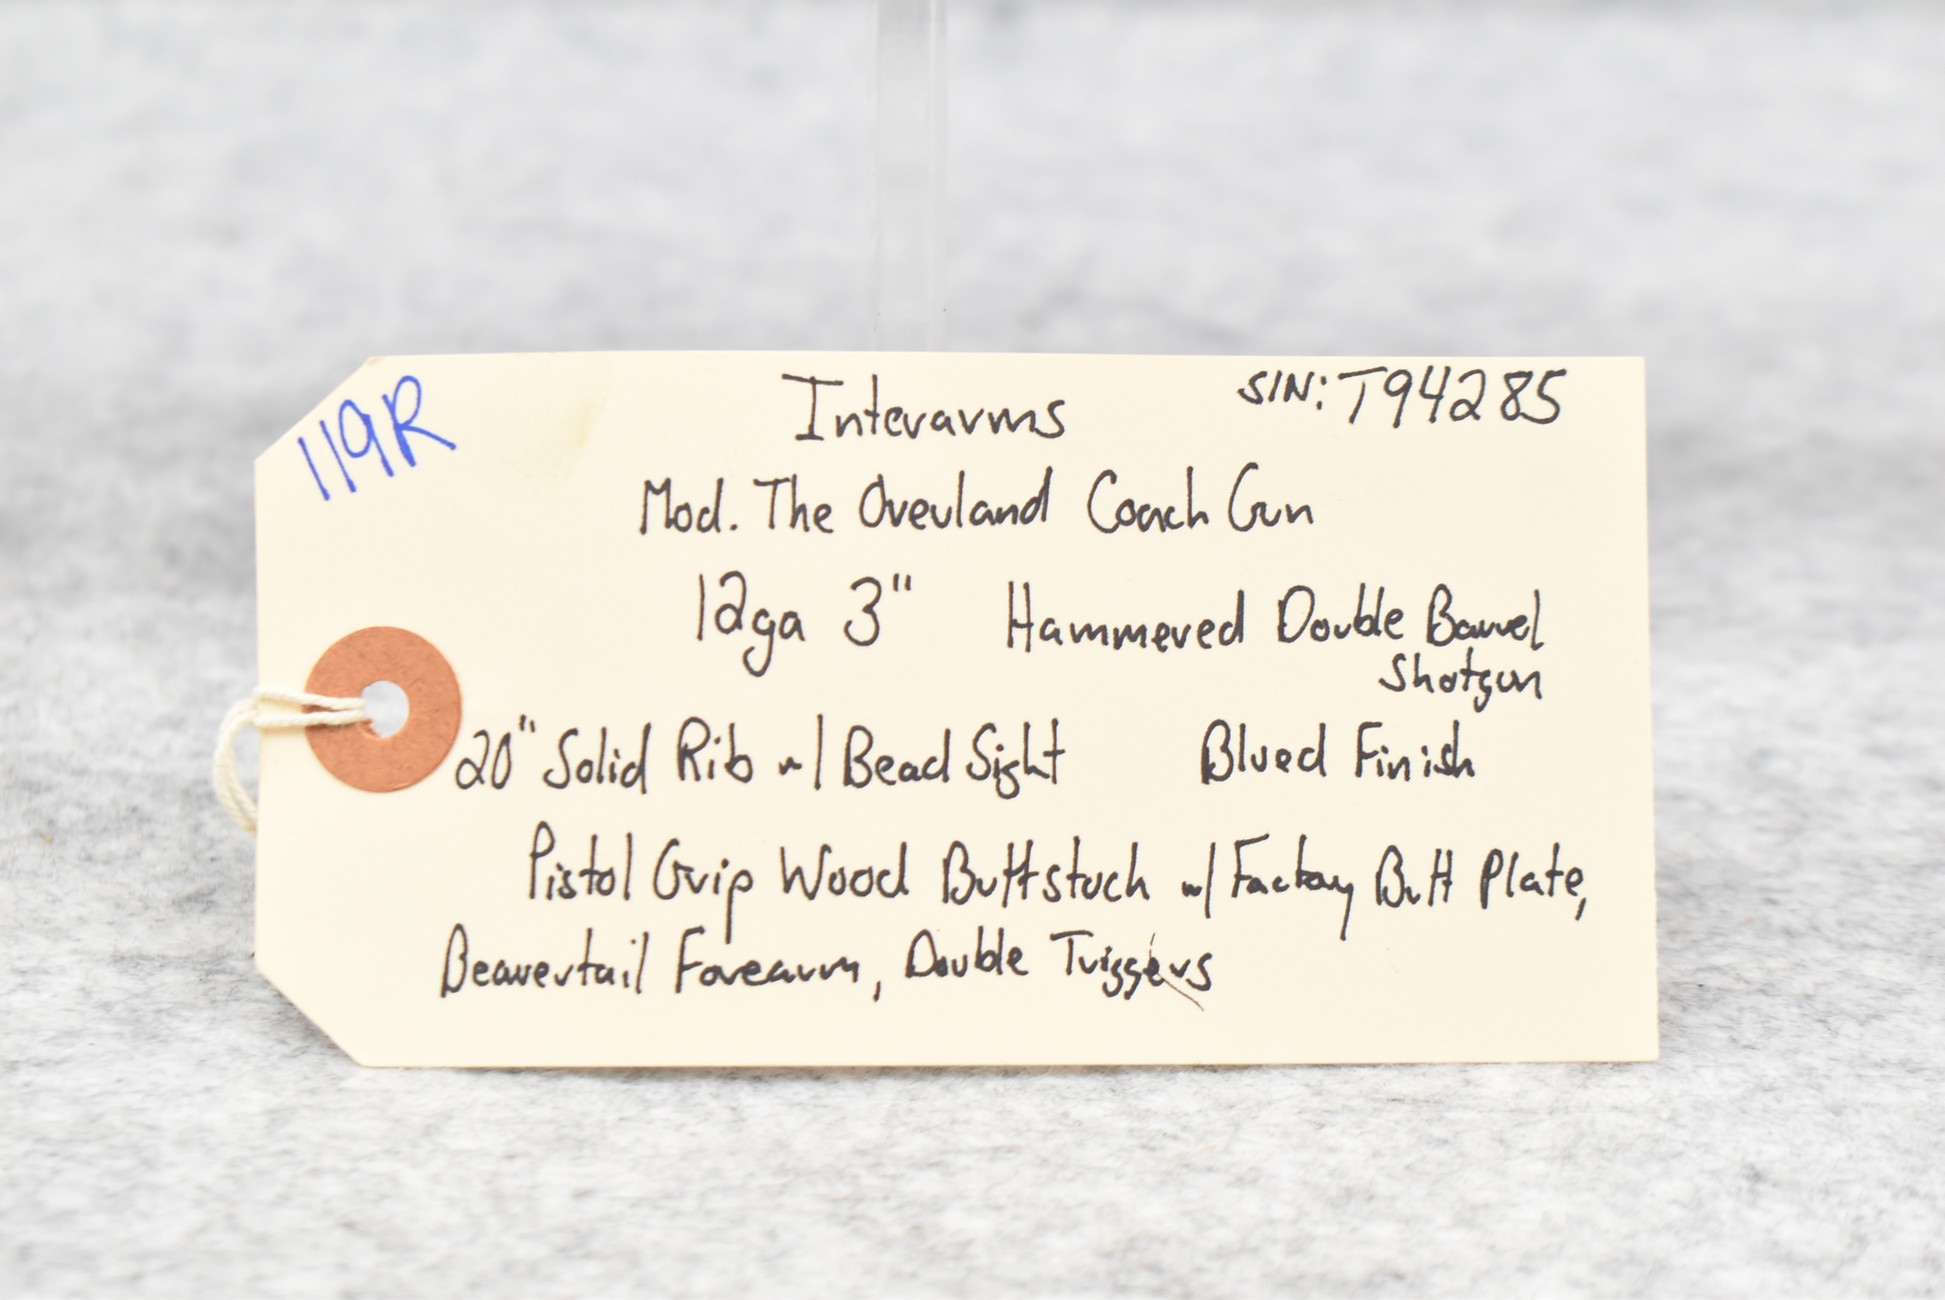 119R
Interarms S/N: T94285
Mod. The Overland Coach Gun
12ga 3" Hammered Double Barrel
Shotgun
20" Solid Rib w/ Bead Sight Blued Finish
Pistol Grip Wood Buttstock w/ Factory Butt Plate,
Beavertail Forearm, Double Triggers